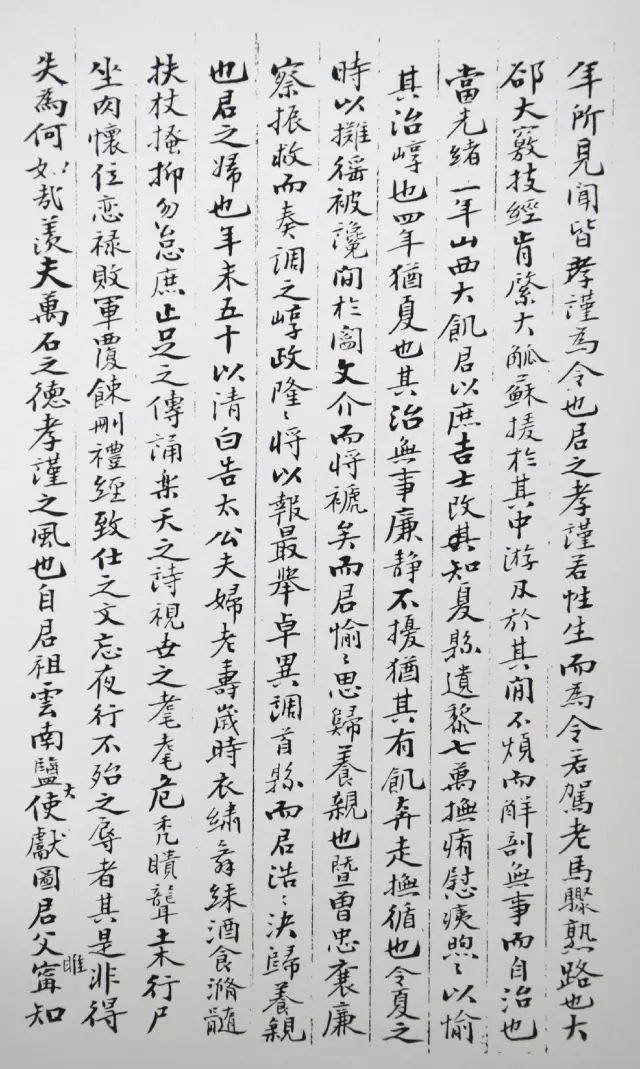 年所見聞皆孝謹為令也君之孝謹若性生而為令若駕老馬驟熟路也大
郤大竅技經肯綮大觚蘇援於其中游刃於其間不煩而解剖無事而自治也
當光緒一年山西大飢君以庶吉士改其知夏縣遺黎七萬撫痏慰痍煦〻以愉
其治崞也四年猶夏也其治無事廉静不擾猶其有飢奔走撫循也令夏之
時以攤徭被讒間於閻文介而將褫矣而君愉〻思歸養親也暨曾忠襄廉
察振救而奏調之崞政隆〻將以報最舉卓異調首縣而君浩〻決歸養親
也君之歸也年未五十以清白告太公夫婦老壽歲時衣繡舞綵酒食滫髓
扶杖搔抑勿怠庶止足之傳誦樂天之詩視世之耄耋危禿瞶聾土木行尸
坐肉懷位恋禄敗軍覆餗刪禮經致仕之文忘夜行不殆之辱者其是非得
失為何如哉羨夫萬石之德孝謹之風也自君祖雲南鹽大使獻圖君父寗睢知